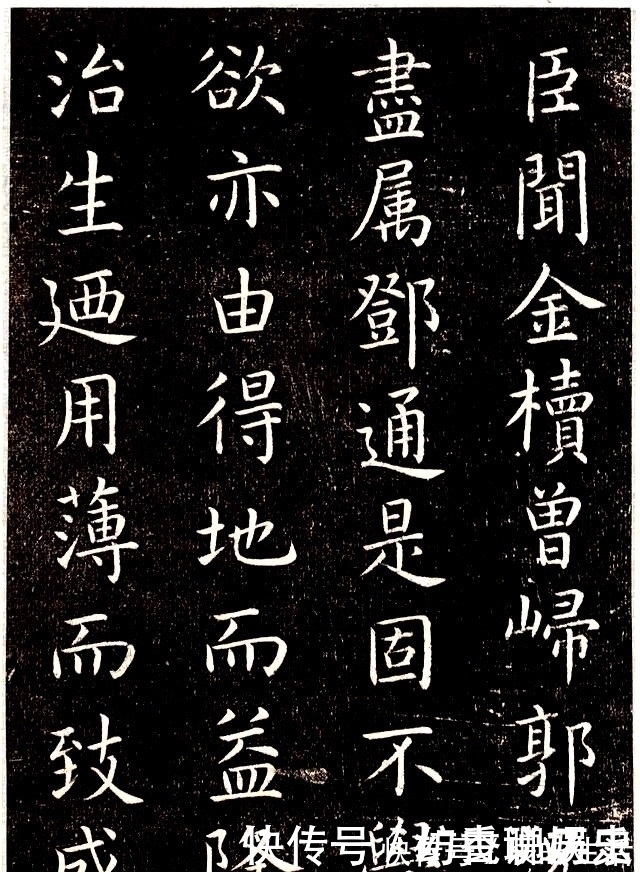 臣聞金櫝曾歸郭
盡属鄧通是固不
欲亦由得地而益
治生廼用薄而致
快传号